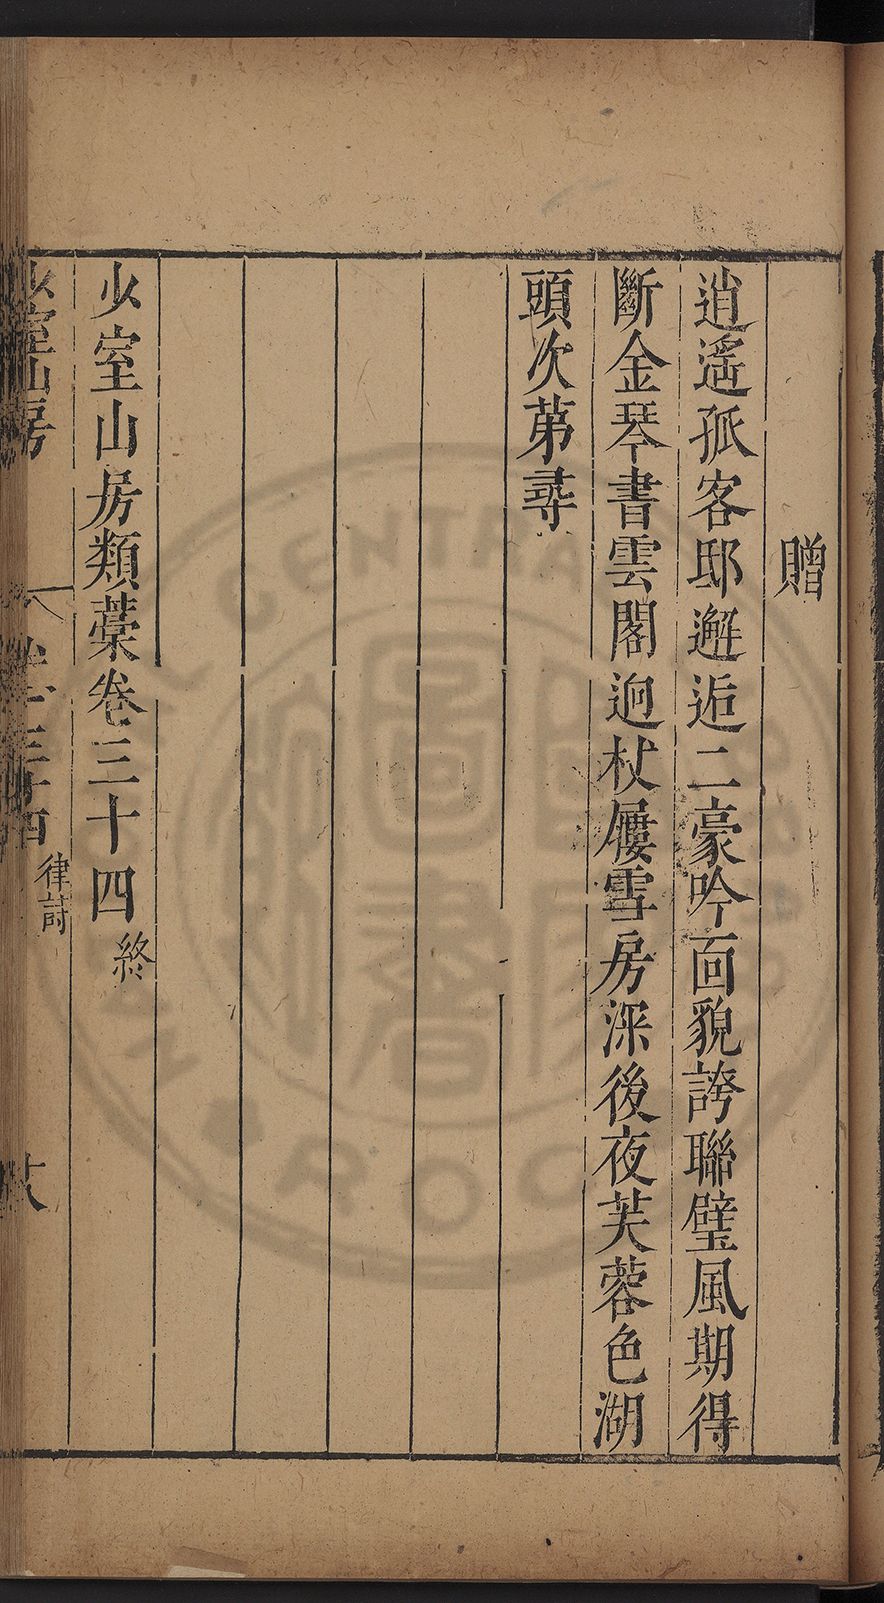 贈
逍遙孤客邸邂逅二豪吟面貌誇聯璧風期得
斷金琴書雲閣逈杖屨雪房深後夜芙蓉色湖
頭次苐尋
少室山房類藁卷三十四終
少室山房 卷三十四 律詩